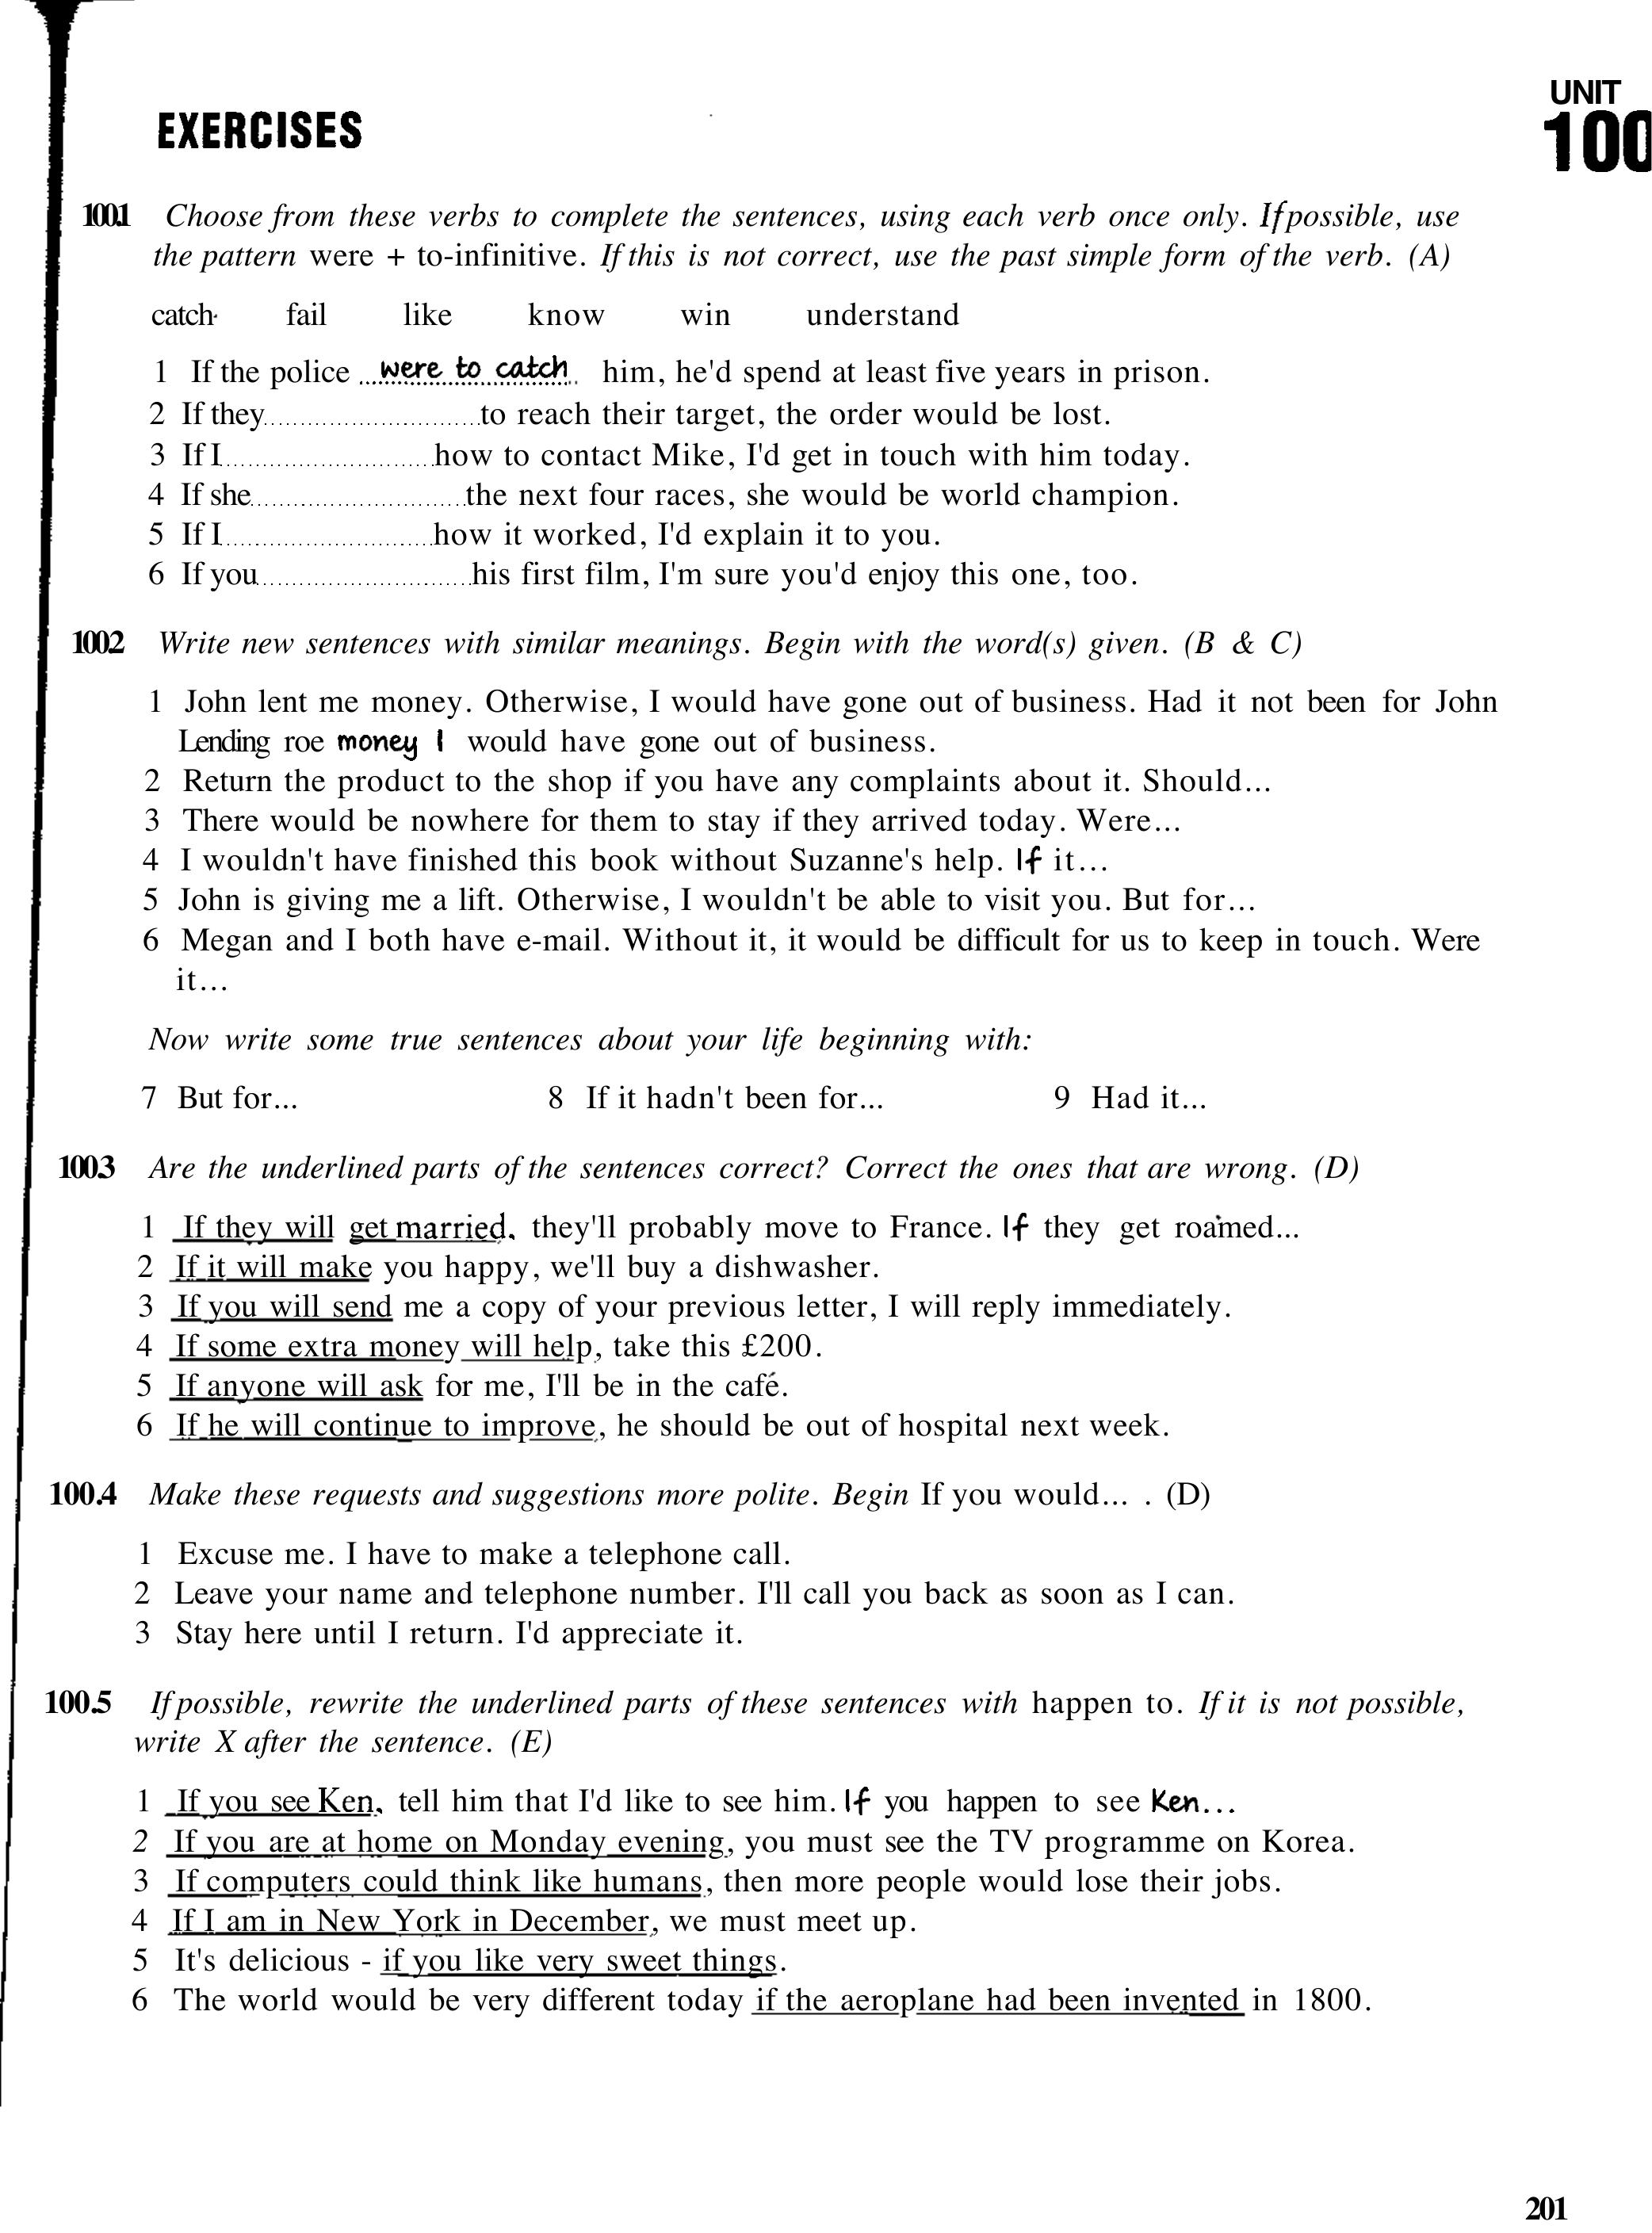 UNIT
EXERCISES
100
100.1 Choose from these verbs to complete the sentences, using each verb once only. If possible, use
the pattern were + to-infinitive. If this is not correct, use the past simple form of the verb. (A)
catch fail like know win understand
1 If the police were to catch him, he'd spend at least five years in prison.
2 If they..............................to reach their target, the order would be lost.
3 If I..............................how to contact Mike, I'd get in touch with him today.
4 If she..............................the next four races, she would be world champion.
5 If I..............................how it worked, I'd explain it to you.
6 If you..............................his first film, I'm sure you'd enjoy this one, too.
100.2 Write new sentences with similar meanings. Begin with the word(s) given. (B & C)
1 John lent me money. Otherwise, I would have gone out of business. Had it not been for John
Lending roe money I would have gone out of business.
2 Return the product to the shop if you have any complaints about it. Should...
3 There would be nowhere for them to stay if they arrived today. Were...
4 I wouldn't have finished this book without Suzanne's help. If it...
5 John is giving me a lift. Otherwise, I wouldn't be able to visit you. But for...
6 Megan and I both have e-mail. Without it, it would be difficult for us to keep in touch. Were
it...
Now write some true sentences about your life beginning with:
7 But for... 8 If it hadn't been for... 9 Had it...
100.3 Are the underlined parts of the sentences correct? Correct the ones that are wrong. (D)
1 If they will get married, they'll probably move to France. If they get roamed...
2 If it will make you happy, we'll buy a dishwasher.
3 If you will send me a copy of your previous letter, I will reply immediately.
4 If some extra money will help, take this £200.
5 If anyone will ask for me, I'll be in the café.
6 If he will continue to improve, he should be out of hospital next week.
100.4 Make these requests and suggestions more polite. Begin If you would... . (D)
1 Excuse me. I have to make a telephone call.
2 Leave your name and telephone number. I'll call you back as soon as I can.
3 Stay here until I return. I'd appreciate it.
100.5 If possible, rewrite the underlined parts of these sentences with happen to. If it is not possible,
write X after the sentence. (E)
1 If you see Ken, tell him that I'd like to see him. If you happen to see Ken...
2 If you are at home on Monday evening, you must see the TV programme on Korea.
3 If computers could think like humans, then more people would lose their jobs.
4 If I am in New York in December, we must meet up.
5 It's delicious - if you like very sweet things.
6 The world would be very different today if the aeroplane had been invented in 1800.
201